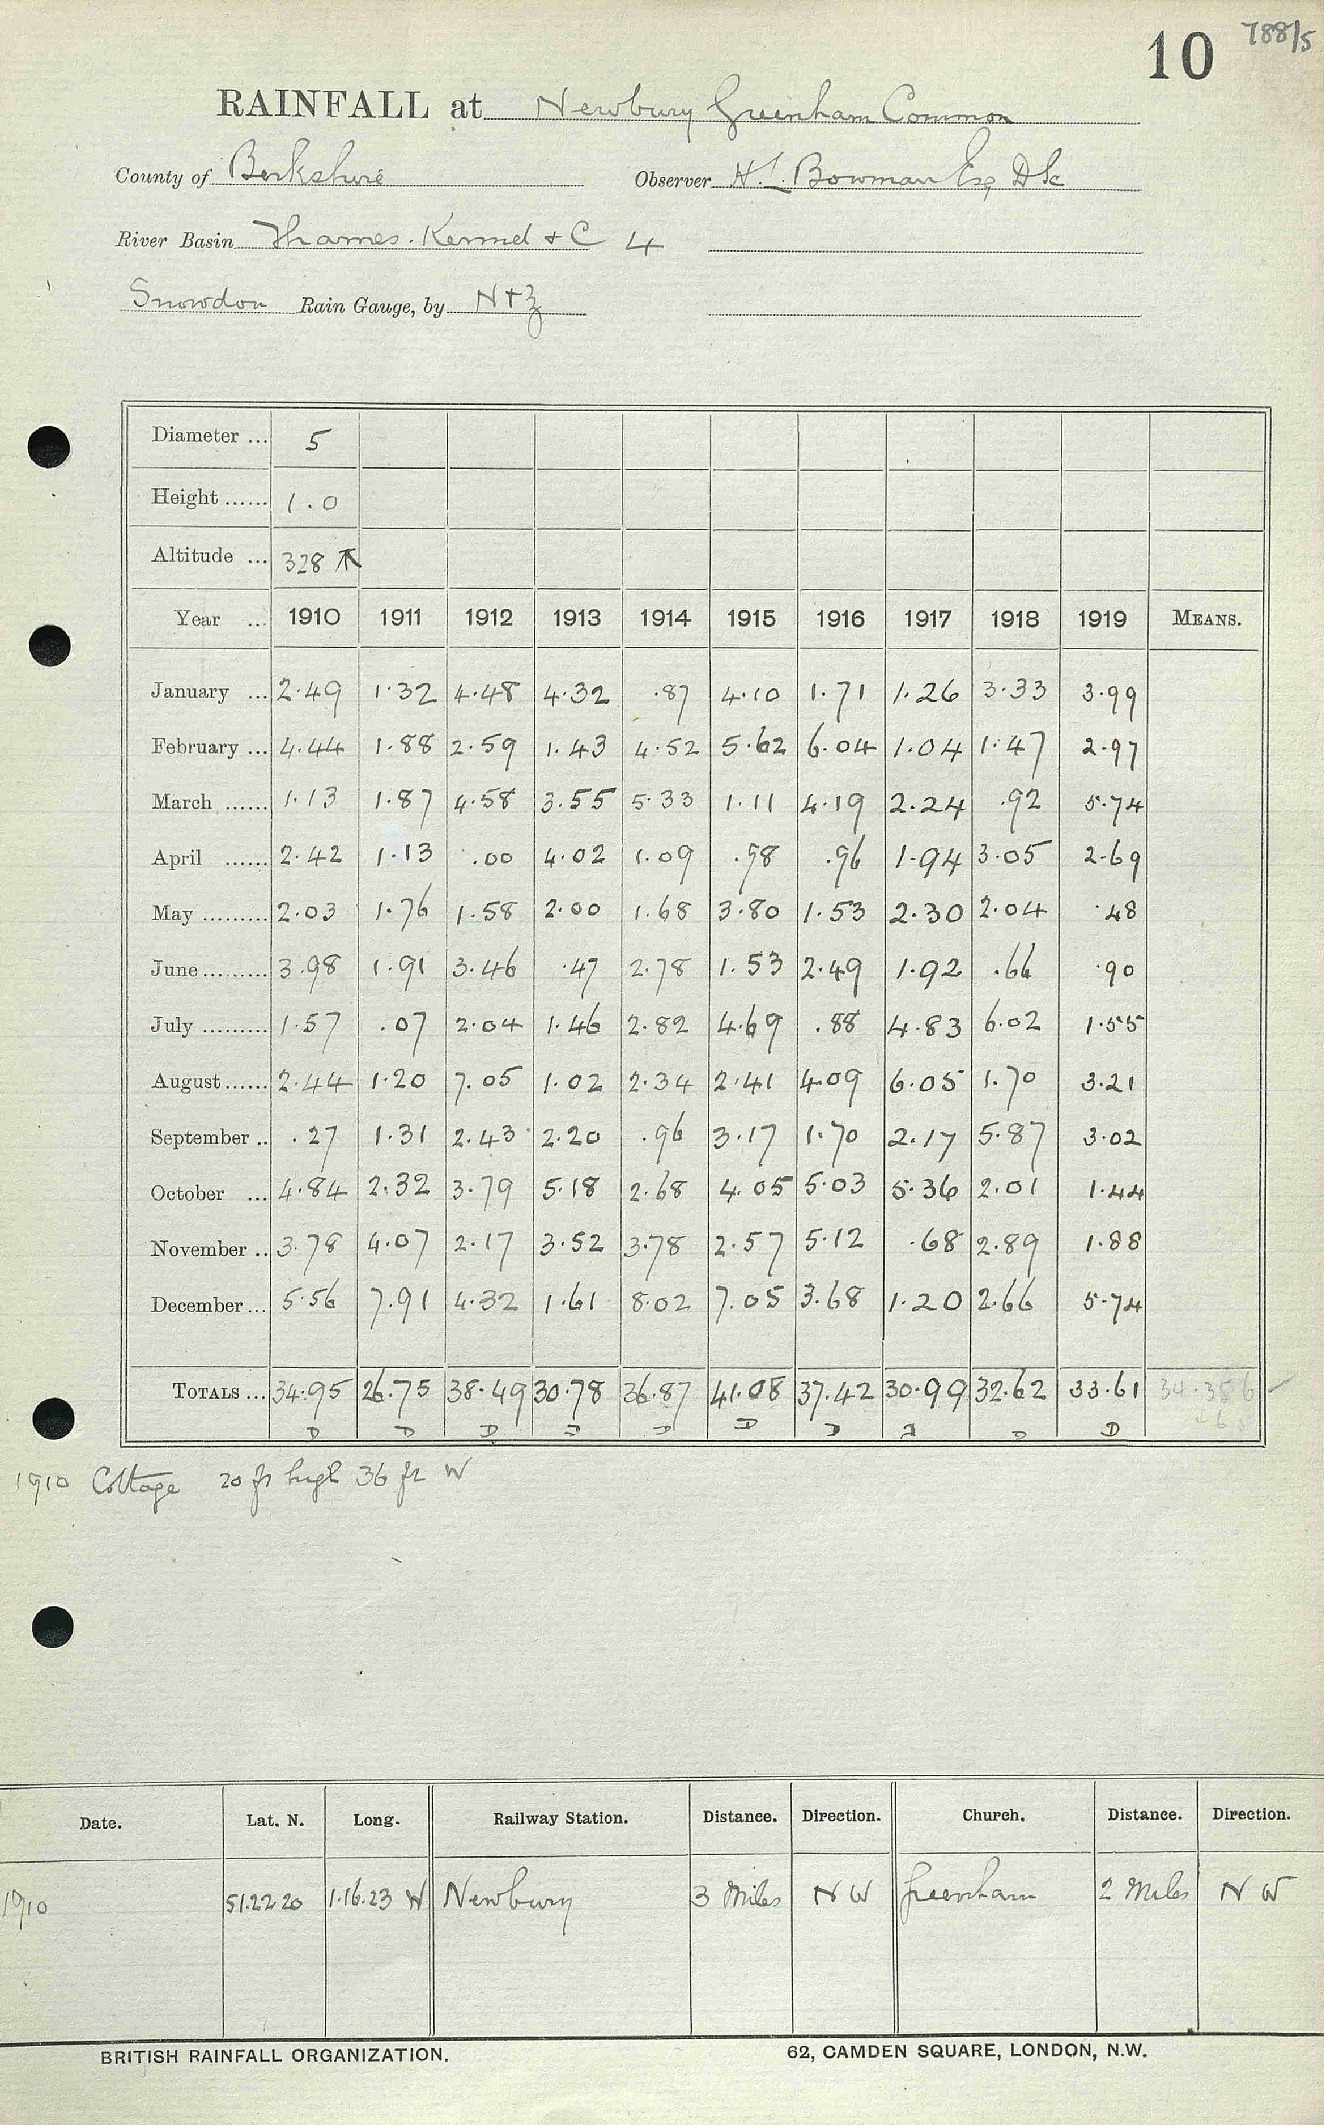 10 788/5
RAINFALL at Newbury Greenham Common
County of Berkshire Observer H.L. Bowman Esq DSc
River Basin Thames. Kennet + C 4
Snowdon Rain Gauge, by N+Z
Diameter ... 5
Height ...... 1.0
Altitude ... 328
Year ... 1910 1911 1912 1913 1914 1915 1916 1917 1918 1919 MEANS.
January ... 2.49 1.32 4.48 4.32 .87 4.10 1.71 1.26 3.33 3.99
February ... 4.44 1.88 2.59 1.43 4.52 5.62 6.04 1.04 1.47 2.97
March ...... 1.13 1.87 4.58 3.55 5.33 1.11 4.19 2.24 .92 5.74
April ...... 2.42 1.13 .00 4.02 1.09 .98 .96 1.94 3.05 2.69
May ......... 2.03 1.76 1.58 2.00 1.68 3.80 1.53 2.30 2.04 .48
June ......... 3.98 1.91 3.46 .47 2.78 1.53 2.49 1.92 .66 .90
July ......... 1.57 .07 2.04 1.46 2.82 4.69 .88 4.83 6.02 1.55
August ...... 2.44 1.20 7.05 1.02 2.34 2.41 4.09 6.05 1.70 3.21
September .. .27 1.31 2.43 2.20 .96 3.17 1.70 2.17 5.87 3.02
October ... 4.84 2.32 3.79 5.18 2.68 4.05 5.03 5.36 2.01 1.44
November .. 3.78 4.07 2.17 3.52 3.78 2.57 5.12 .68 2.89 1.88
December ... 5.56 7.91 4.32 1.61 8.02 7.05 3.68 1.20 2.66 5.74
TOTALS ... 34.95 26.75 38.49 30.78 36.87 41.08 37.42 30.99 32.62 33.61 34.356
D D D D D D D D D D
1910 Cottage 20 ft high 36 ft W
Date. Lat. N. Long. Railway Station. Distance. Direction. Church. Distance. Direction.
1910 51.22.20 1.16.23 W Newbury 3 Miles N W Greenham 2 Miles N W
BRITISH RAINFALL ORGANIZATION. 62, CAMDEN SQUARE, LONDON, N.W.